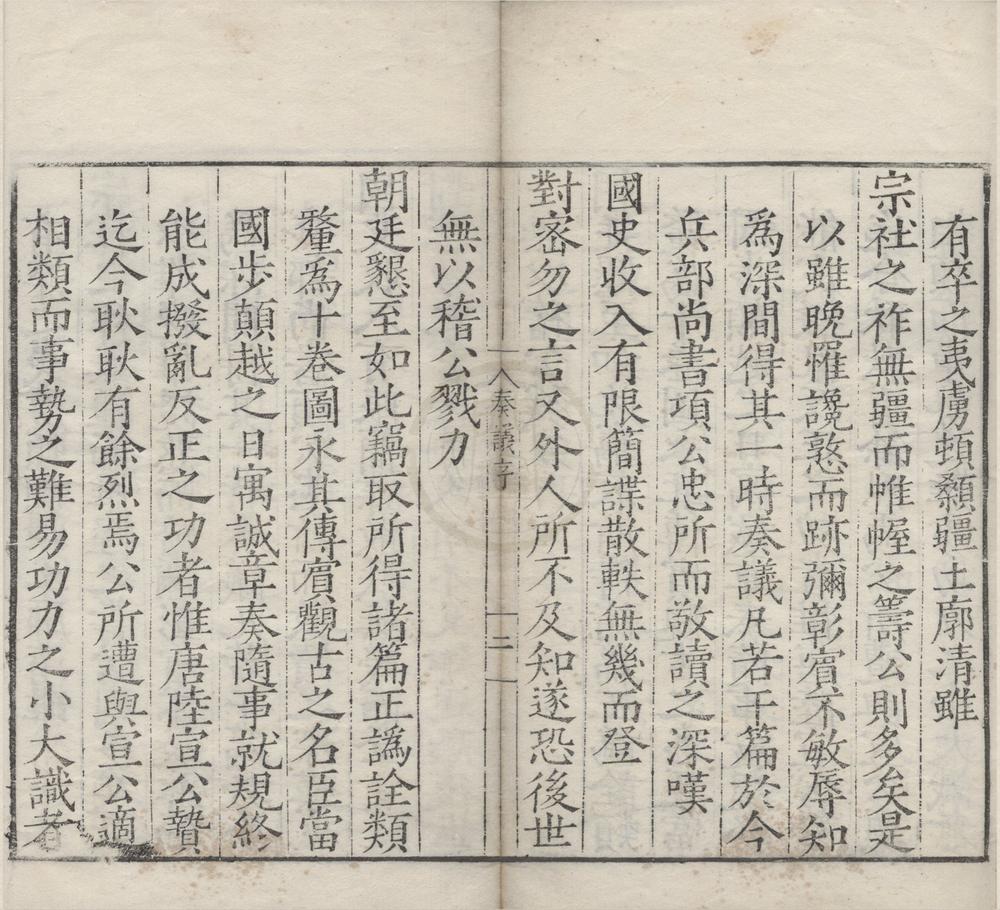 有卒之夷虜頓顙疆土廓清雖
宗社之祚無疆而帷幄之籌公則多矣是
以雖晚罹讒憝而跡彌彰賓不敏辱知
爲深間得其一時奏議凡若干篇於今
兵部尚書項公忠所而敬讀之深嘆
國史收入有限簡諜散軼無幾而登
對密勿之言又外人所不及知遂恐後世
無以稽公戮力
奏議序
二
朝廷懇至如此竊取所得諸篇正譌詮類
釐爲十卷圖永其傳賓觀古之名臣當
國步顛越之日寓誠章奏隨事就規終
能成撥亂反正之功者惟唐陸宣公贄
迄今耿耿有餘烈焉公所遭與宣公適
相類而事勢之難易功力之小大識者